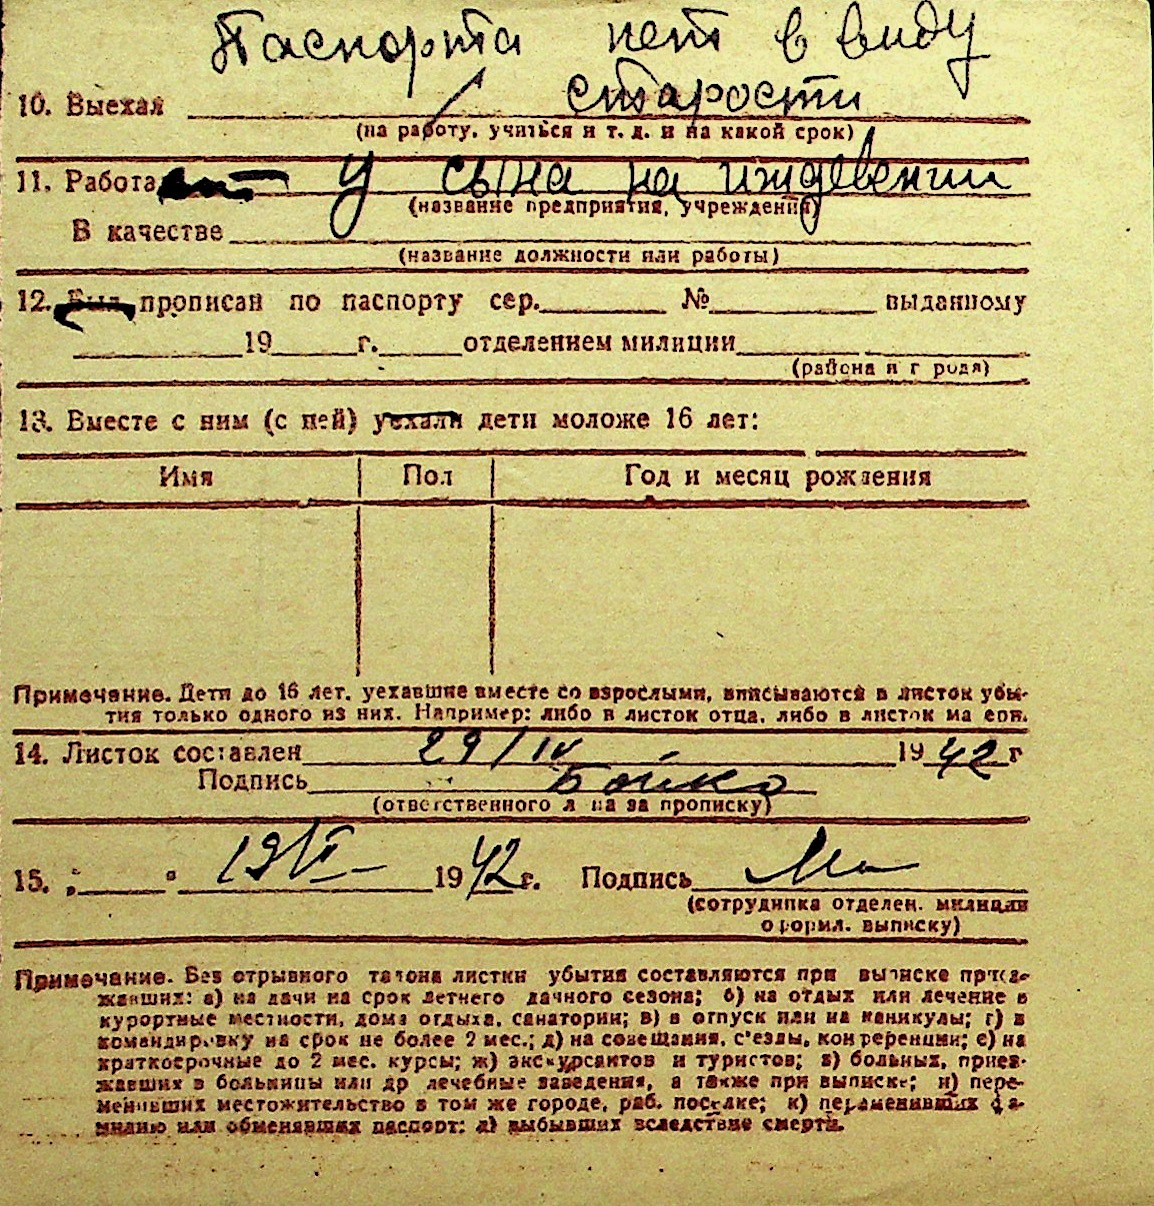 Паспорта нет в виду
старости
10. Выехал
(на работу, учиться и т. д. и на какой срок)
11. Работа у сына на иждевении
(название предприятия, учреждения)
В качестве
(название должности или работы)
12. Был прописан по паспорту сер. № выданному
19 г. отделением милиции
(района и г рода)
13. Вместе с ним (с ней) уехали дети моложе 16 лет:
Имя Пол Год и месяц рождения
Примечание. Дети до 16 лет, уехавшие вместе со взрослыми, вписываются в листок убы-
тия только одного из них. Например: либо в листок отца, либо в листок ма ери.
14. Листок составлен 29/IV 1942 г
Подпись Бойко
(ответственного л ца за прописку)
15. „ “ 19/VI 1942 г. Подпись
(сотрудника отделен. милиции
оформл. выписку)
Примечание. Без отрывного талона листки убытия составляются при выписке приез-
жавших: а) на дачи на срок летнего дачного сезона; б) на отдых или лечение в
курортные местности, дома отдыха, санатории; в) в отпуск или на каникулы; г) в
командировку на срок не более 2 мес.; д) на совещания, с'езды, конференции; е) на
краткосрочные до 2 мес. курсы; ж) экскурсантов и туристов; з) больных, приез-
жавших в больницы или др лечебные заведения, а также при выписке; и) пере-
менивших местожительство в том же городе, раб. поселке; к) переменивших фа-
милию или обменявших паспорт; л) выбывших вследствие смерти.